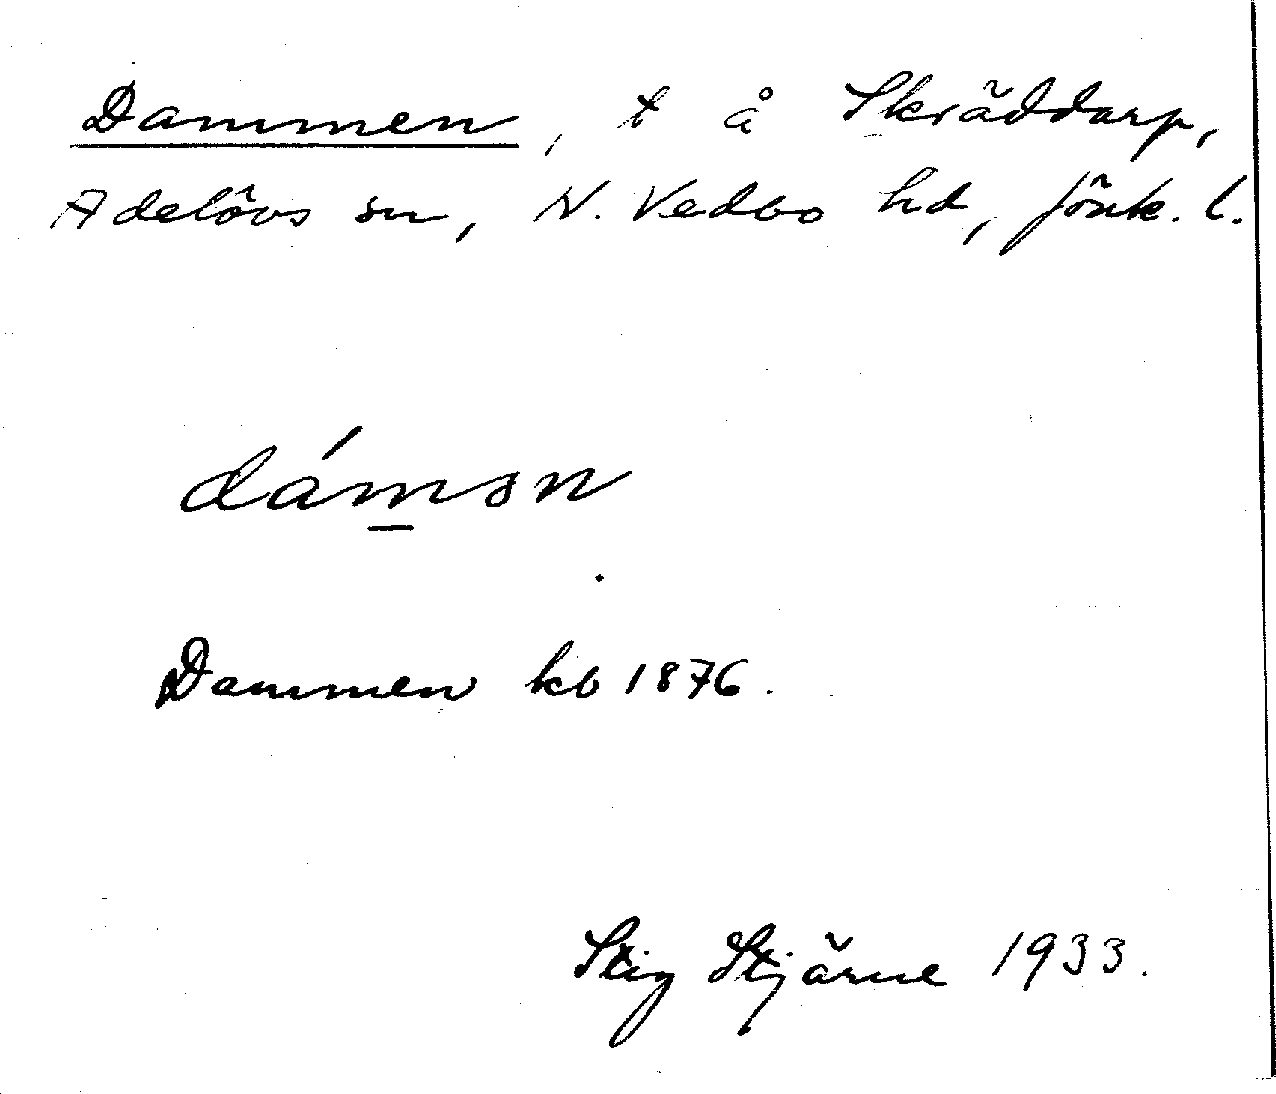 Dammen, t å Skräddarp,
Adelövs sn, N. Vedbo hd, Jönk. l.
dám̲ən
Dammen kb 1876.
Stig Stjärne 1933.